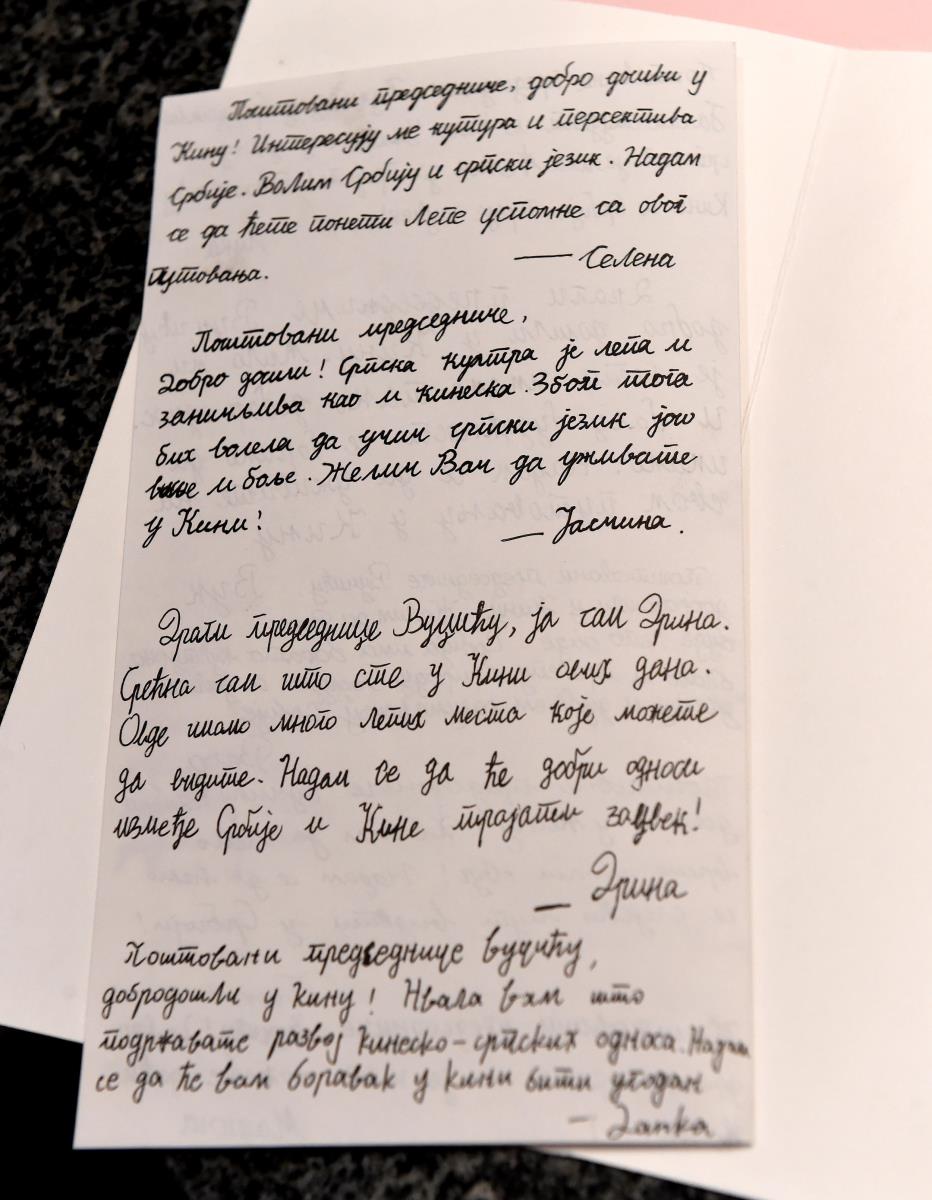 Поштовани председниче, добро дошли у
Кину! Интересују ме кутура и персектива
Србије. Волим Србију и српски језик. Надам
се да ћете понети лепе успомне са овог
путовања.
— Селена
Поштовани председниче,
Добро дошли! Српска култра је лепа и
занимљива као и кинеска. Због тога
бих волела да учим српски језик још
више и боље. Желим Вам да уживате
у Кини!
— Јасмина.
Драги председнице Вуцићу, ја сам Эрина.
Срећна сам што сте у Кини ових дана.
Овде имамо много лепих места које можете
да видите. Надам се да ће добри односи
између Србије и Кине трајати заувек!
— Эрина
Поштовани председнице вуцићу,
добродошли у кину! Нвала вам што
подржавате развој кинеско-српских односа. Надам
се да ће вам боравак у кини бити угодан